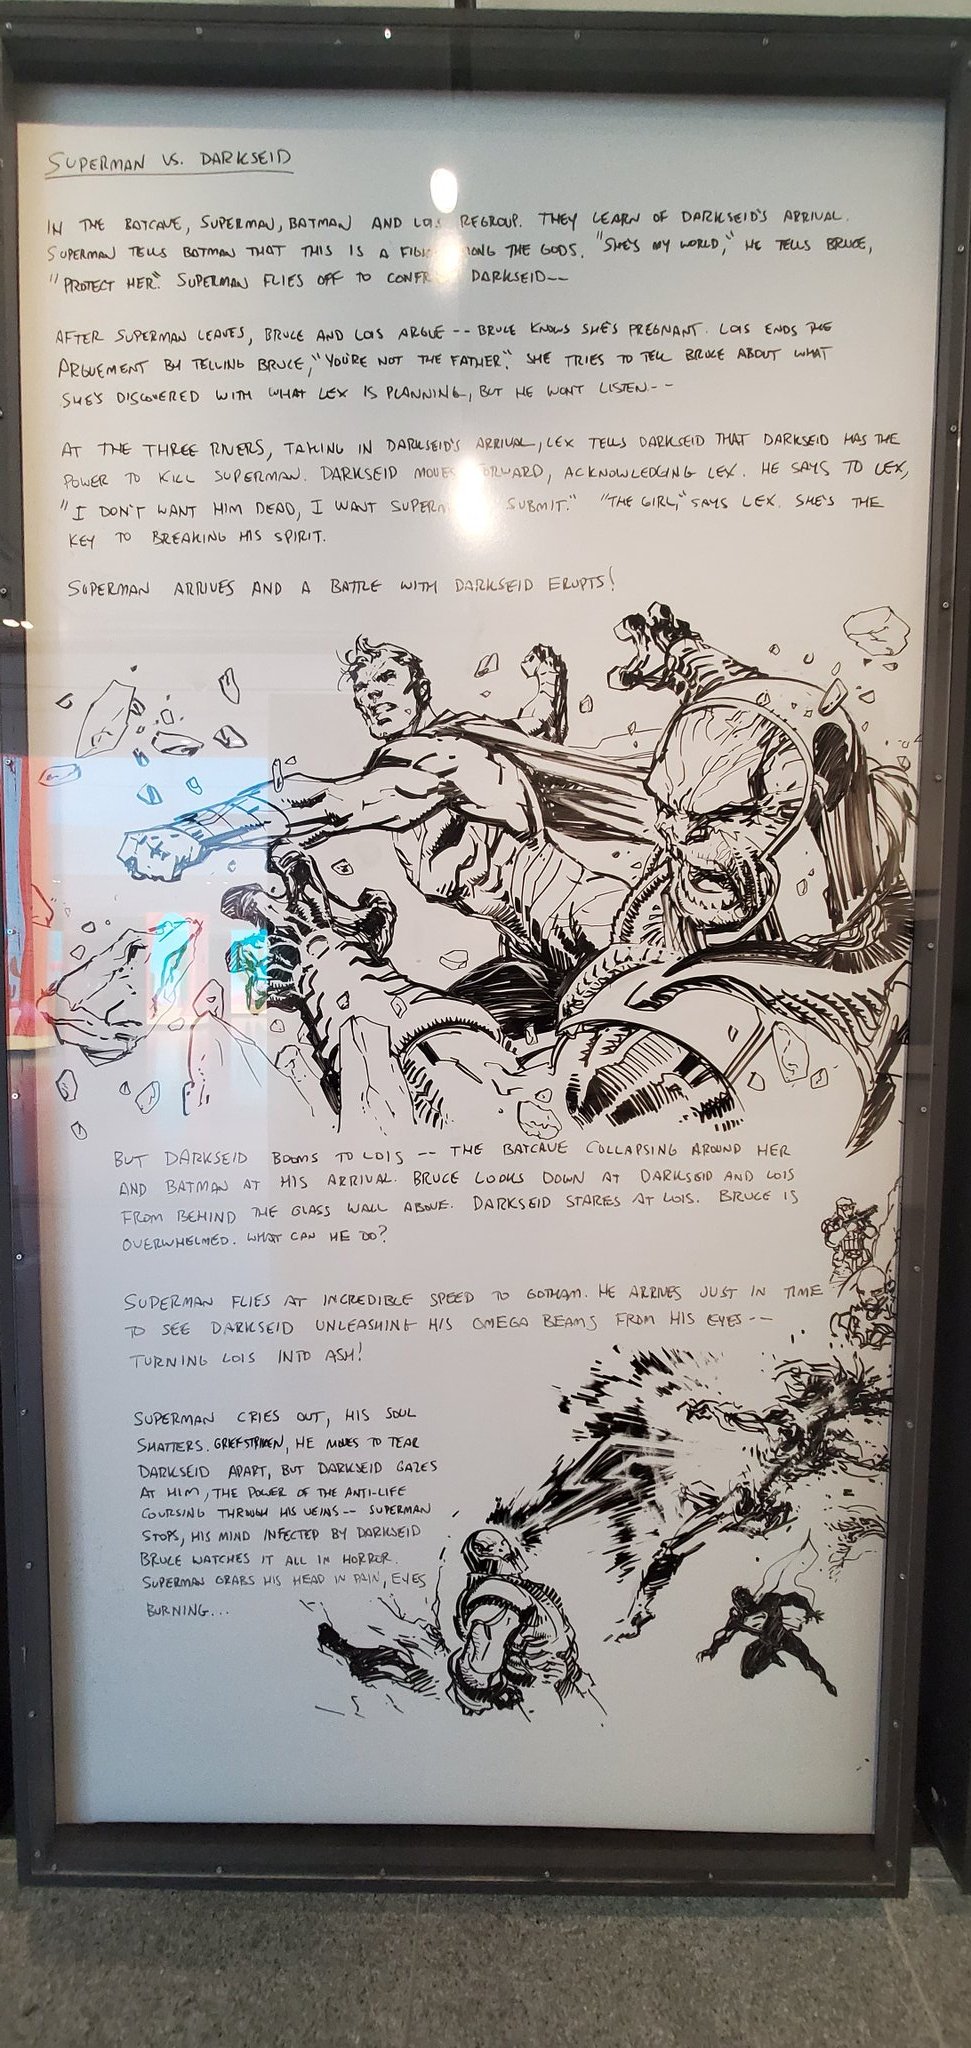 SUPERMAN VS. DARKSEID
IN THE BATCAVE, SUPERMAN, BATMAN AND LOIS REGROUP. THEY LEARN OF DARKSEID'S ARRIVAL.
SUPERMAN TELLS BATMAN THAT THIS IS A FIGHT AMONG THE GODS. "SHE'S MY WORLD," HE TELLS BRUCE,
"PROTECT HER." SUPERMAN FLIES OFF TO CONFRONT DARKSEID--
AFTER SUPERMAN LEAVES, BRUCE AND LOIS ARGUE -- BRUCE KNOWS SHE'S PREGNANT. LOIS ENDS THE
ARGUEMENT BY TELLING BRUCE, "YOU'RE NOT THE FATHER." SHE TRIES TO TELL BRUCE ABOUT WHAT
SHE'S DISCOVERED WITH WHAT LEX IS PLANNING, BUT HE WONT LISTEN--
AT THE THREE RIVERS, TAKING IN DARKSEID'S ARRIVAL, LEX TELLS DARKSEID THAT DARKSEID HAS THE
POWER TO KILL SUPERMAN. DARKSEID MOVES FORWARD, ACKNOWLEDGING LEX. HE SAYS TO LEX,
"I DON'T WANT HIM DEAD, I WANT SUPERMAN SUBMIT." "THE GIRL," SAYS LEX. SHE'S THE
KEY TO BREAKING HIS SPIRIT.
SUPERMAN ARRIVES AND A BATTLE WITH DARKSEID ERUPTS!
BUT DARKSEID BOOMS TO LOIS -- THE BATCAVE COLLAPSING AROUND HER
AND BATMAN AT HIS ARRIVAL. BRUCE LOOKS DOWN AT DARKSEID AND LOIS
FROM BEHIND THE GLASS WALL ABOVE. DARKSEID STARES AT LOIS. BRUCE IS
OVERWHELMED. WHAT CAN HE DO?
SUPERMAN FLIES AT INCREDIBLE SPEED TO GOTHAM. HE ARRIVES JUST IN TIME
TO SEE DARKSEID UNLEASHING HIS OMEGA BEAMS FROM HIS EYES --
TURNING LOIS INTO ASH!
SUPERMAN CRIES OUT, HIS SOUL
SHATTERS. GRIEFSTRIKEN, HE MOVES TO TEAR
DARKSEID APART, BUT DARKSEID GAZES
AT HIM, THE POWER OF THE ANTI-LIFE
COURSING THROUGH HIS VEINS -- SUPERMAN
STOPS, HIS MIND INFECTED BY DARKSEID
BRUCE WATCHES IT ALL IN HORROR.
SUPERMAN GRABS HIS HEAD IN PAIN, EYES
BURNING...